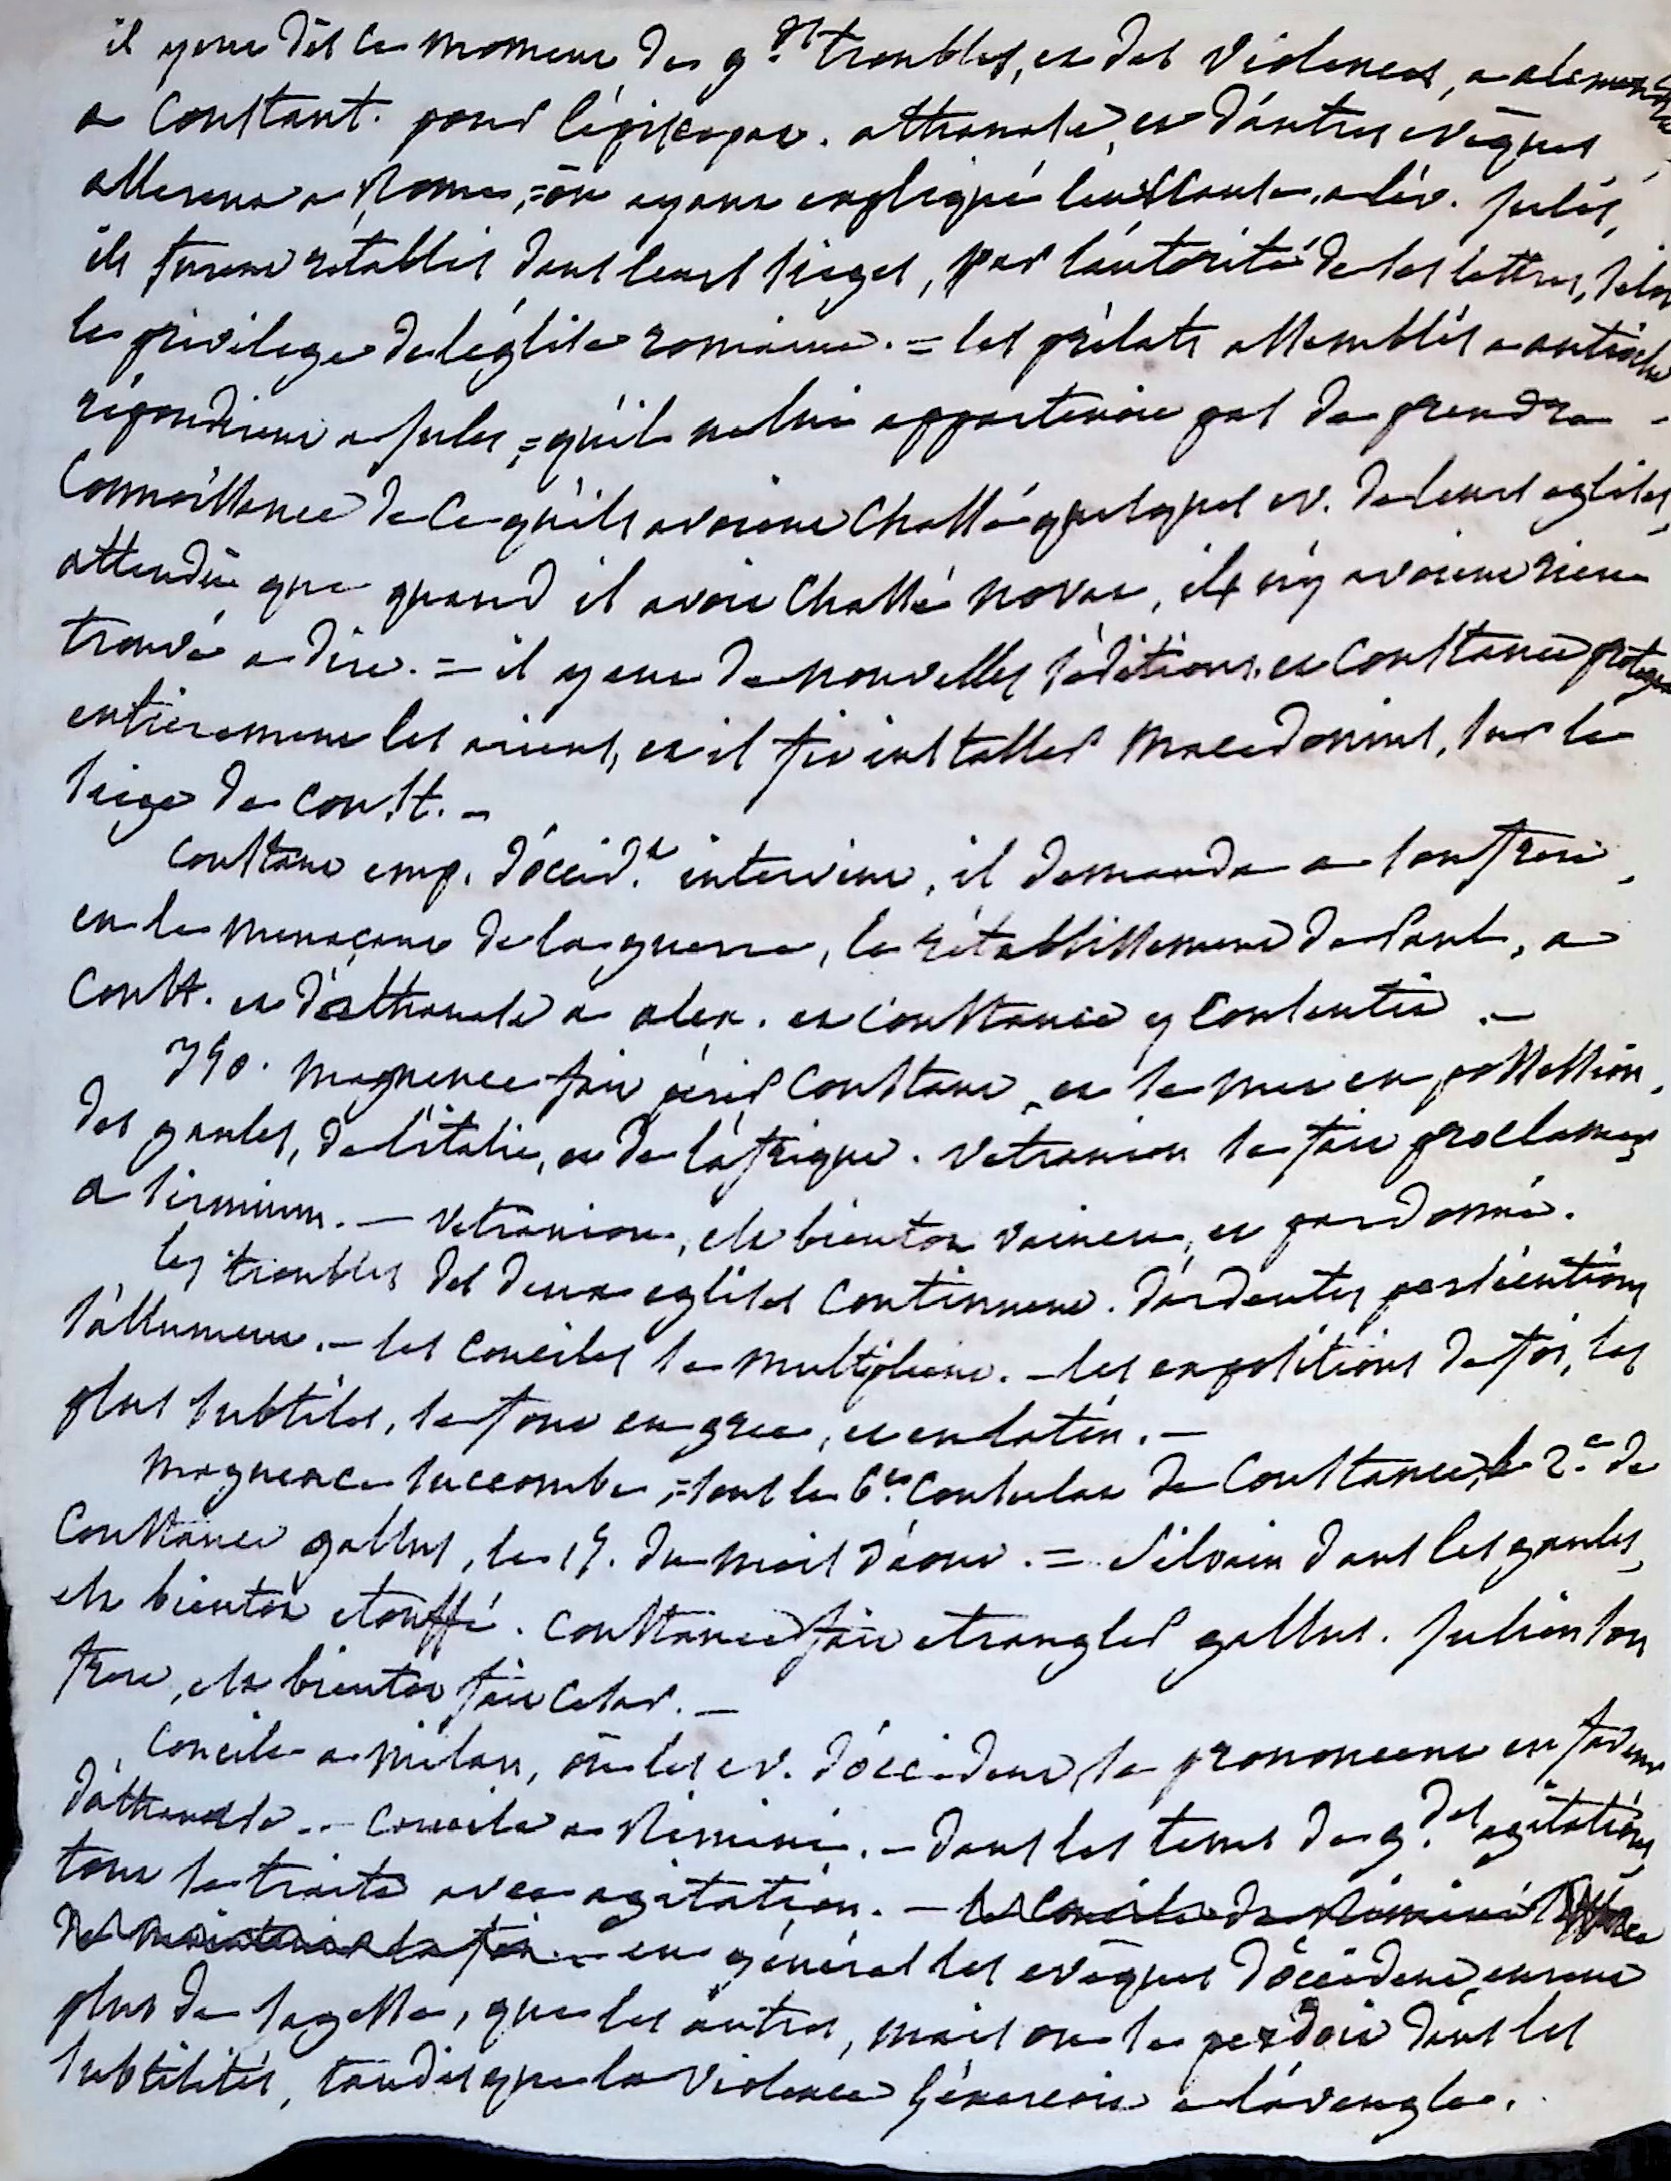 il y eut dès ce moment de g.ds troubles, et des violences, a alexandrie
a Constant. pour l'épiscopat. athanase, et d'autres evêques,
allerent a Rome, = où ayant expliqué leur cause, a l'év. jules,
ils furent rétablis dans leurs sieges, par l'autorité de ses lettres, selon
le privilege de l'église romaine. = les prélats assemblés a antioche
répondirent a jules, = qu'il ne lui appartenoit pas de prendre
connoissance de ce qu'ils avoient chassé quelques ev. de leurs eglises,
attendu que quand il avoit chassé novat, ils n'y avoient rien
trouvé a dire. = il y eut de nouvelles séditions. et Constance protegea
entierement les ariens, et il fit installer Macedonius, sur le
siege de Const. –
Constant emp. d'occid.t intervint, il demanda a son frere,
en le menaçant de la guerre, le rétablissement de Paul, a
Const. et d'athanase a alex. et Constance y consentit. –
350. Magnence fait périr Constant, et se met en possession,
des gaules, de l'italie, et de l'afrique. Vetranion se fait proclamer,
a Sirmium. – Vetranion, est bientot vaincu, et pardonné.
les troubles des deux eglises continuent. d'ardentes persécutions
s'allument. – les conciles se multiplient. – les expositions de foi, les
plus subtiles, se font en grec, et en latin. –
Magnence succombe, = sous le 6.e consulat de Constance, le 2.e de
Constance gallus, le 15. du mois d'aout. = Silvain dans les gaules,
est bientot etouffé. Constance fait etrangler gallus. Julien son
frere, est bientot fait Cesar. –
Concile a Milan, où les ev. d'occident, se prononcent en faveur
d'athanase. – Concile a Rimini. – dans les tems de g.des agitations,
tout se traite avec agitation. – le Concile de Rimini
de maintenir la foi. – en général les evêques d'occident, eurent
plus de sagesse, que les autres, mais on se perdoit dans les
subtilités, tandis que la violence s'exerçoit a l'aveugle.